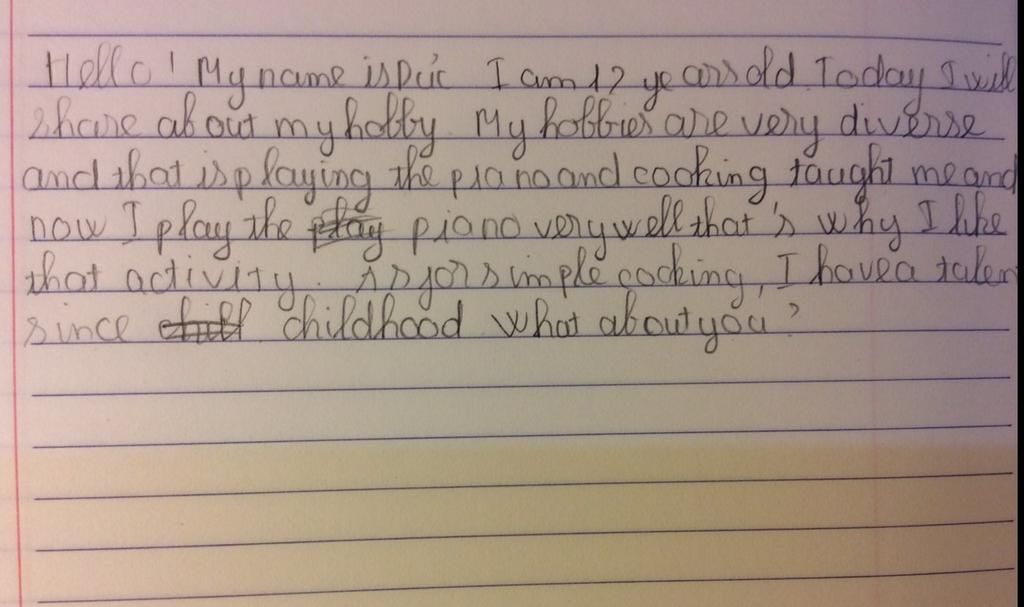 Hello! My name is Đức I am 12 years old. Today I will
share about my hobby. My hobbies are very diverse
and that is playing the piano and cooking taught me and
now I play the play piano very well that's why I like
that activity. As for simple cooking, I have a talen
since childhood what about you?